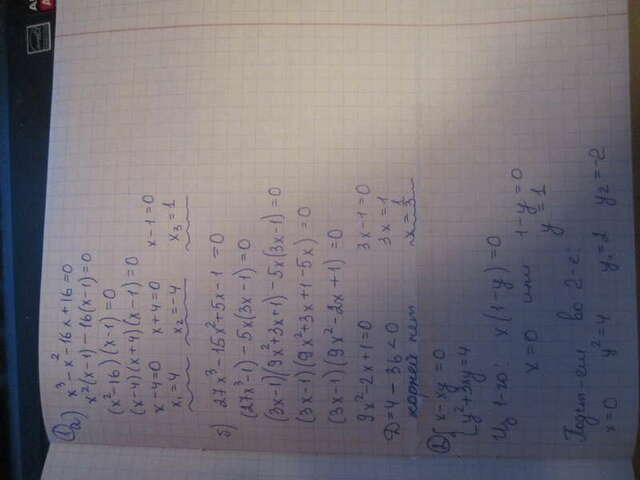 ① а) x³ - x² - 16x + 16 = 0
x²(x-1) - 16(x-1) = 0
(x²-16)(x-1) = 0
(x-4)(x+4)(x-1) = 0
x-4=0 x+4=0 x-1=0
x₁=4 x₂=-4 x₃=1
б) 27x³ - 15x² + 5x - 1 = 0
(27x³-1) - 5x(3x-1) = 0
(3x-1)(9x²+3x+1) - 5x(3x-1) = 0
(3x-1)(9x²+3x+1-5x) = 0
(3x-1)(9x²-2x+1) = 0
9x²-2x+1=0 3x-1=0
Д=4-36<0 3x=1
корней нет x=1/3
② { x-xy=0
y²+3xy=4
Из 1-го: x(1-y)=0
x=0 или 1-y=0
y=1
Подст-ем во 2-е:
x=0 y²=4 y₁=2 y₂=-2